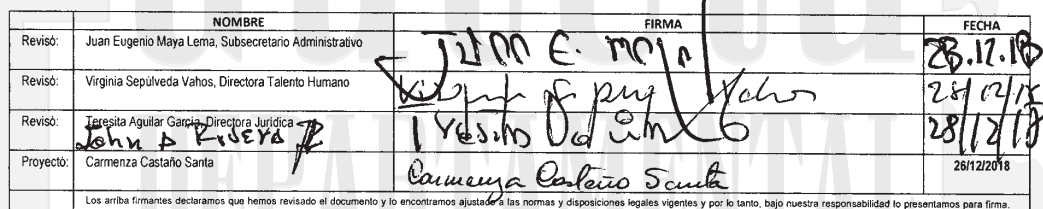 NOMBRE FIRMA FECHA
Revisó: Juan Eugenio Maya Lema, Subsecretario Administrativo JUAN E. MAYA 28.12.18
Revisó: Virginia Sepúlveda Vahos, Directora Talento Humano 28/12/18
Revisó: Teresita Aguilar García, Directora Jurídica 28/12/18
John D Rivera
Proyectó: Carmenza Castaño Santa Carmenza Castaño Santa 26/12/2018
Los arriba firmantes declaramos que hemos revisado el documento y lo encontramos ajustado a las normas y disposiciones legales vigentes y por lo tanto, bajo nuestra responsabilidad lo presentamos para firma.